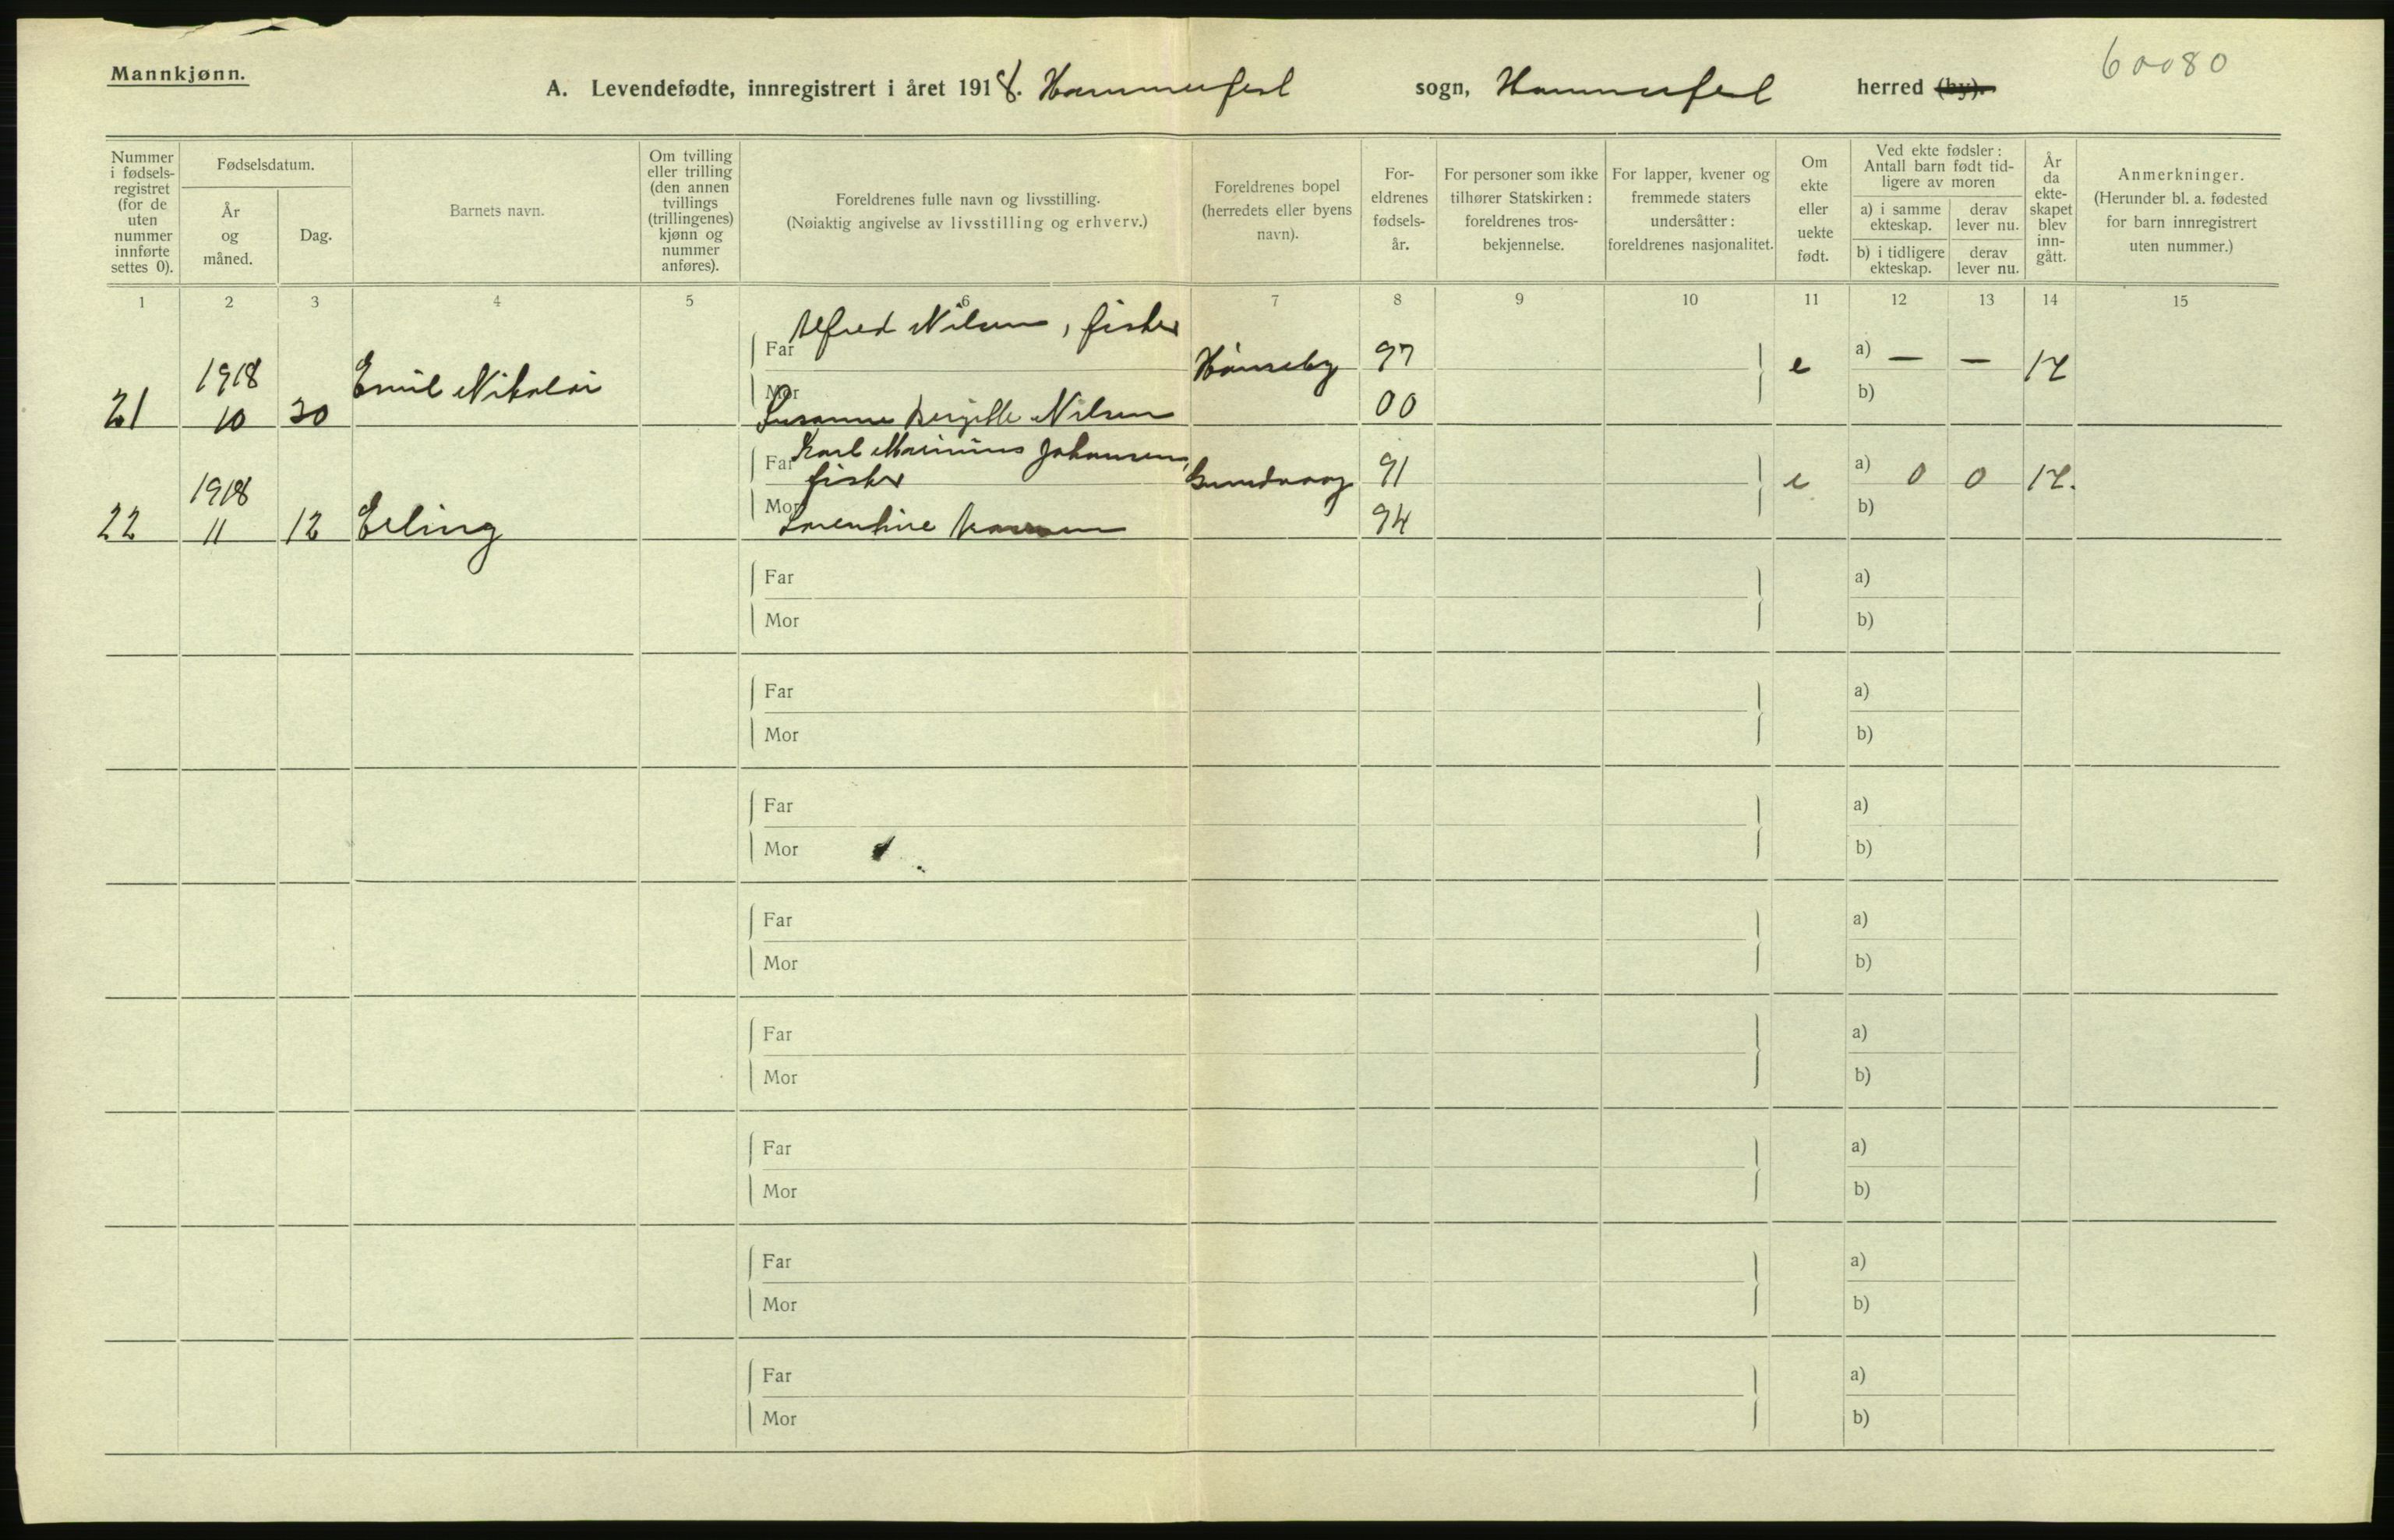 Mannkjønn.
A. Levendefødte, innregistrert i året 1918. Hammerfest sogn, Hammerfest herred (by).
60080
Nummer i fødsels-registret (for de uten nummer innførte settes 0).
Fødselsdatum.
År og måned.
Dag.
Barnets navn.
Om tvilling eller trilling (den annen tvillings (trillingenes) kjønn og nummer anføres).
Foreldrenes fulle navn og livsstilling.
(Nøiaktig angivelse av livsstilling og erhverv.)
Foreldrenes bopel (herredets eller byens navn).
For-eldrenes fødsels-år.
For personer som ikke tilhører Statskirken: foreldrenes tros-bekjennelse.
For lapper, kvener og fremmede staters undersåtter: foreldrenes nasjonalitet.
Om ekte eller uekte født.
Ved ekte fødsler: Antall barn født tid-ligere av moren
a) i samme ekteskap.
derav lever nu.
b) i tidligere ekteskap.
derav lever nu.
År da ekte-skapet blev inn-gått.
Anmerkninger.
(Herunder bl. a. fødested for barn innregistrert uten nummer.)
1 2 3 4 5 6 7 8 9 10 11 12 13 14 15
Alfred Nilsen, fisker
Far 97 a) — —
1918 Emil Nikolai Hønseby e 17
Mor b)
21 10 30 Susanne Bergitte Nilsen 00
Karl Marinius Johansen,
Far fisker 91 e a) 0 0 17.
1918
Mor b)
22 11 12 Erling Lorentine 94
Far a)
Mor b)
Far a)
Mor b)
Far a)
Mor b)
Far a)
Mor b)
Far a)
Mor b)
Far a)
Mor b)
Far a)
Mor b)
Far a)
Mor b)